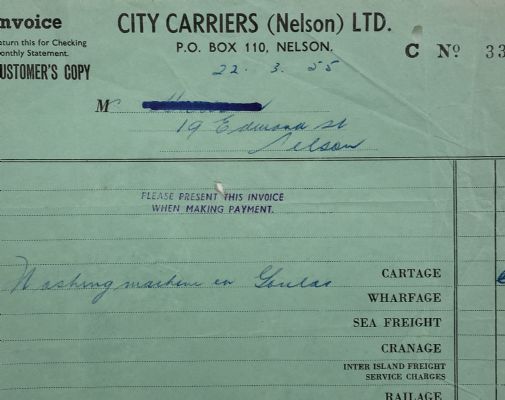 nvoice
CITY CARRIERS (Nelson) LTD.
eturn this for Checking
onthly Statement.
P.O. BOX 110, NELSON.
C Nº 33
USTOMER'S COPY
22. 3. 55
M
19 Edmond St
Nelson
PLEASE PRESENT THIS INVOICE
WHEN MAKING PAYMENT.
Washing machine ex
CARTAGE
WHARFAGE
SEA FREIGHT
CRANAGE
INTER ISLAND FREIGHT
SERVICE CHARGES
RAILAGE